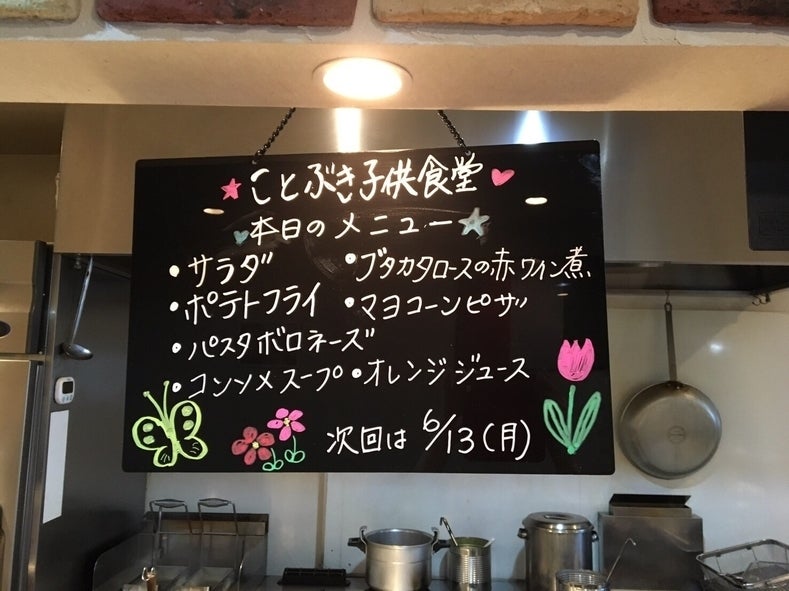 ことぶき子供食堂
本日のメニュー
・サラダ ・ブタカタロースの赤ワイン煮
・ポテトフライ ・マヨコーンピザ
・パスタボロネーズ
・コンソメスープ ・オレンジジュース
次回は 6/13(月)